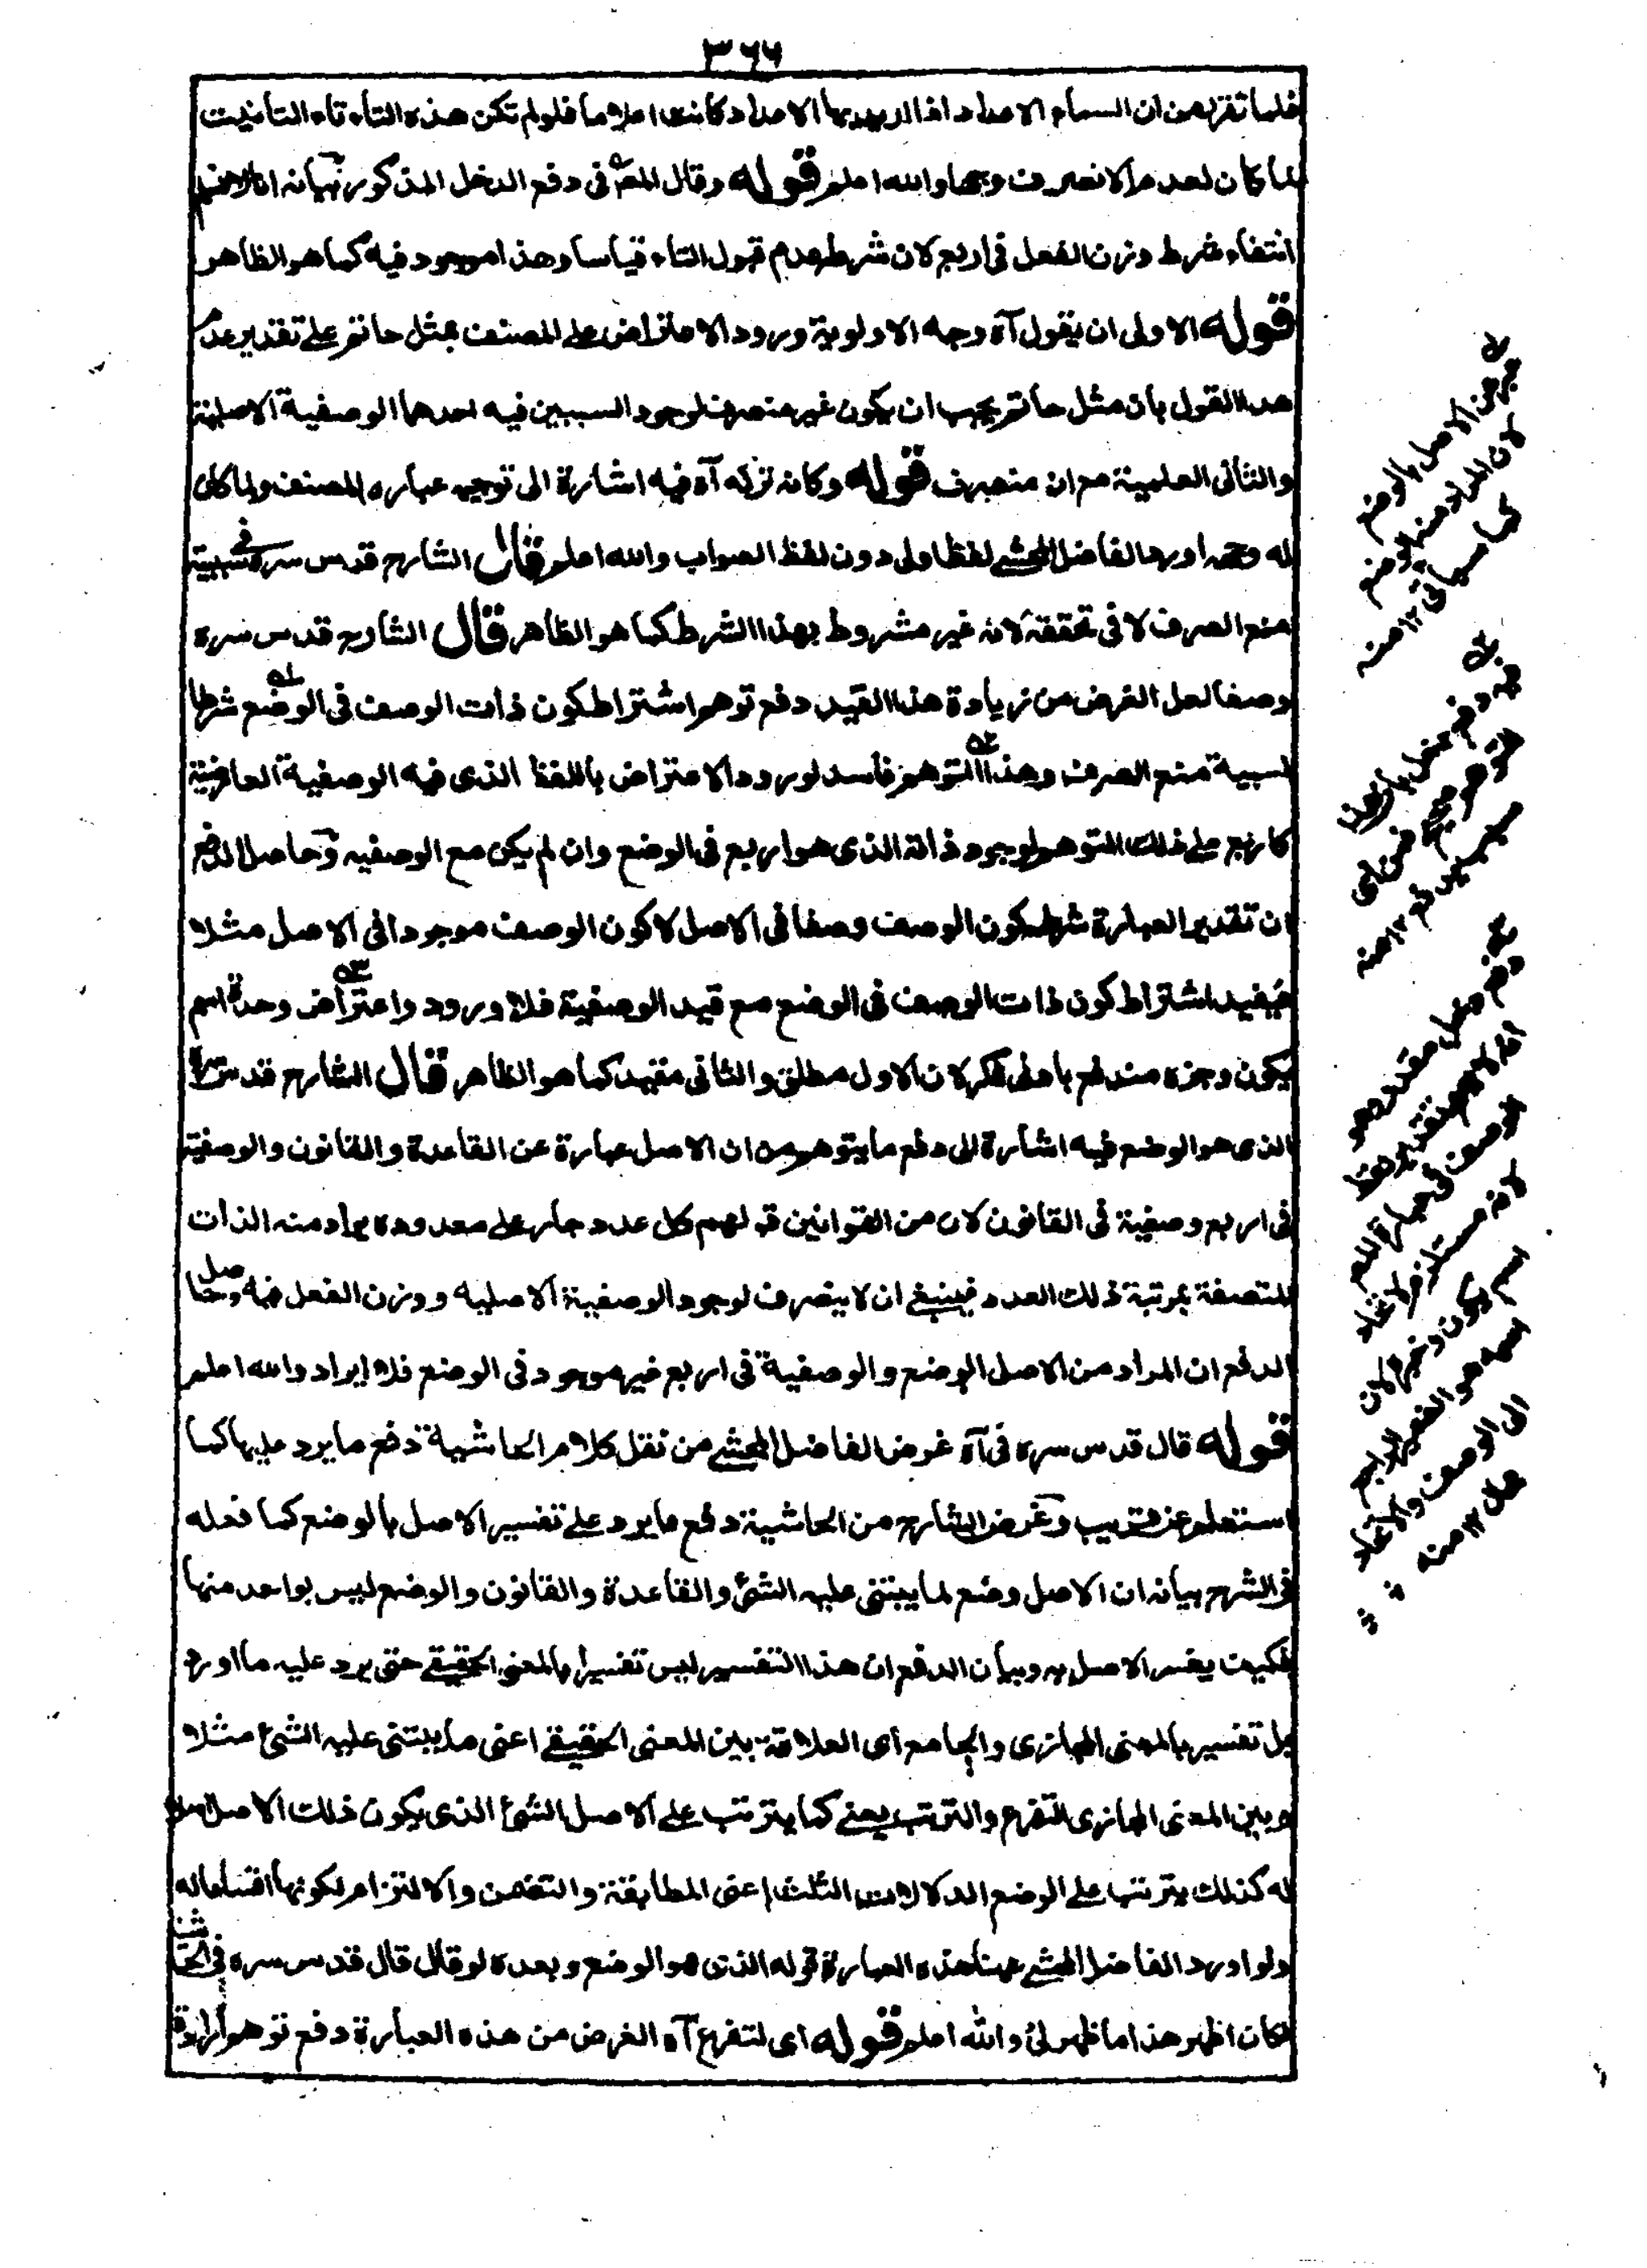 ٣٦٦
فلما تقرر من ان السماء الاعداد اذا اريد بها الاعداد كانت اعلاما فلولم تكن هذه التاء تاء التانيث
لما كان لعدم الانصراف وجها والله اعلم قوله وقال المص فى دفع الدخل المذكور بيانه انا لا نسلم
انتفاء شرط وزن الفعل فى اربع لان شرط عدم قبول التاء قياسا وهذا موجود فيه كما هو الظاهر
قوله الاولى ان يقول آه وجه الاولوية ورود الاعتراض على المصنف بمثل حاتم على تقدير عدم
هذا القول بان مثل حاتم يجب ان يكون غير منصرف لوجود السببين فيه احدهما الوصفية الاصلية
والثانى العلمية مع ان منصرف قوله وكانه تركه آه فيه اشارة الى توجيه عباره المصنف ولما كان
له وجه اورد الفاضل المحشى لفظ اولى دون لفظ الصواب والله اعلم قال الشارح قدس سره فى سببية
منع الصرف لا فى تحققه لانه غير مشروط بهذا الشرط كما هو الظاهر قال الشارح قدس سره
وصفا لعل الغرض من زيادة هذا القيد دفع توهم اشتراط كون ذات الوصف فى الوضع شرطا
لسببية منع الصرف وهذا التوهم فاسد لورود الاعتراض باللفظ الذى فيه الوصفية العارضية
كاربع على ذلك التوهم لوجود ذاته الذى هو اربع فى الوضع وان لم يكن مع الوصفيه وحاصل الدفع
ان تقدير العبارة شرط كون الوصف وصفا فى الاصل لا كون الوصف موجودا فى الاصل مثلا
فيفيد اشتراط كون ذات الوصف فى الوضع مع قيد الوصفية فلا ورود واعتراض وحدة اسم
يكون وخبره مندفع بادنى فكر لان الاول مطلق والثانى مقيد كما هو الظاهر قال الشارح قدس سره
الذى هو الوضع فيه اشارة الى دفع ما يتوهم من ان الاصل عبارة عن القاعدة والقانون والوصفية
فى اربع وصفية فى القانون لان من القوانين قولهم كل عدد جار على معدوده يراد منه الذات
المتصفة بمرتبة ذلك العدد فينبغى ان لا ينصرف لوجود الوصفية الاصليه ووزن الفعل فيه وحاصل
الدفع ان المراد من الاصل الوضع والوصفية فى اربع غير موجود فى الوضع فلا ايراد والله اعلم
قوله قال قدس سره فى آه غرض الفاضل المحشى من نقل كلام الحاشية دفع ما يرد عليها كما
استعلم عن قريب وغرض الشارح من الحاشية دفع ما يرد على تفسير الاصل بالوضع كما فعله
فى الشرح بيانه ان الاصل وضع لما يبتنى عليه الشئ والقاعدة والقانون والوضع ليس بواحد منها
فكيف يفسر الاصل به وبيان الدفع ان هذا التفسير ليس تفسيرا بالمعنى الحقيقى حتى يرد عليه ما اورد
بل تفسير بالمعنى المجازى والجامع اى العلاقة بين المعنى الحقيقى اعنى ما يبتنى عليه الشئ مثلا
وبين المعنى المجازى التفرع والترتب يعنى كما يترتب على الاصل الشئ الذى يكون ذلك الاصل اصلا
له كذلك يترتب على الوضع الدلالات الثلث اعنى المطابقة والتضمن والالتزام لكونها اقساما له
ولو اورد الفاضل المحشى ههنا هذه العبارة قوله الذى هو الوضع وبعده لو قال قال قدس سره فى الحاشية
لكان اظهر هذا ما ظهر لى والله اعلم قوله اى لتفرع آه الغرض من هذه العبارة دفع توهم ارادة
لان المراد منه الوضع
كما سياتى ١٢ منه